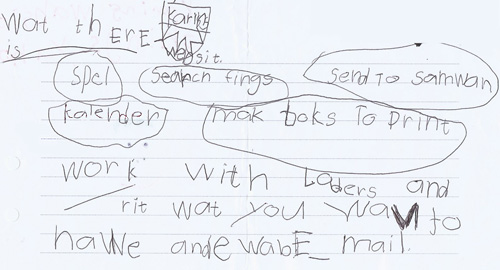 wat thERE Karins
is websit.
spel Search fings send To samwan
kalender mak boks To print
work with Laders and
rit wat you wavt to
hawe ande wabE mail.